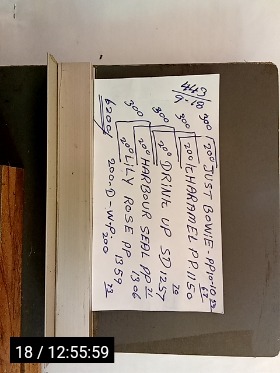 443
9-18
300 200 JUST BOWIE - PP10-10
300 200 CHARAMEL PP 1150
300 200 DRINK UP SD 1257
300 200 HARBOUR SEAL PP 1306
200 LILY ROSE PP 1359
200 D - WP 200
6200
18 / 12:55:59